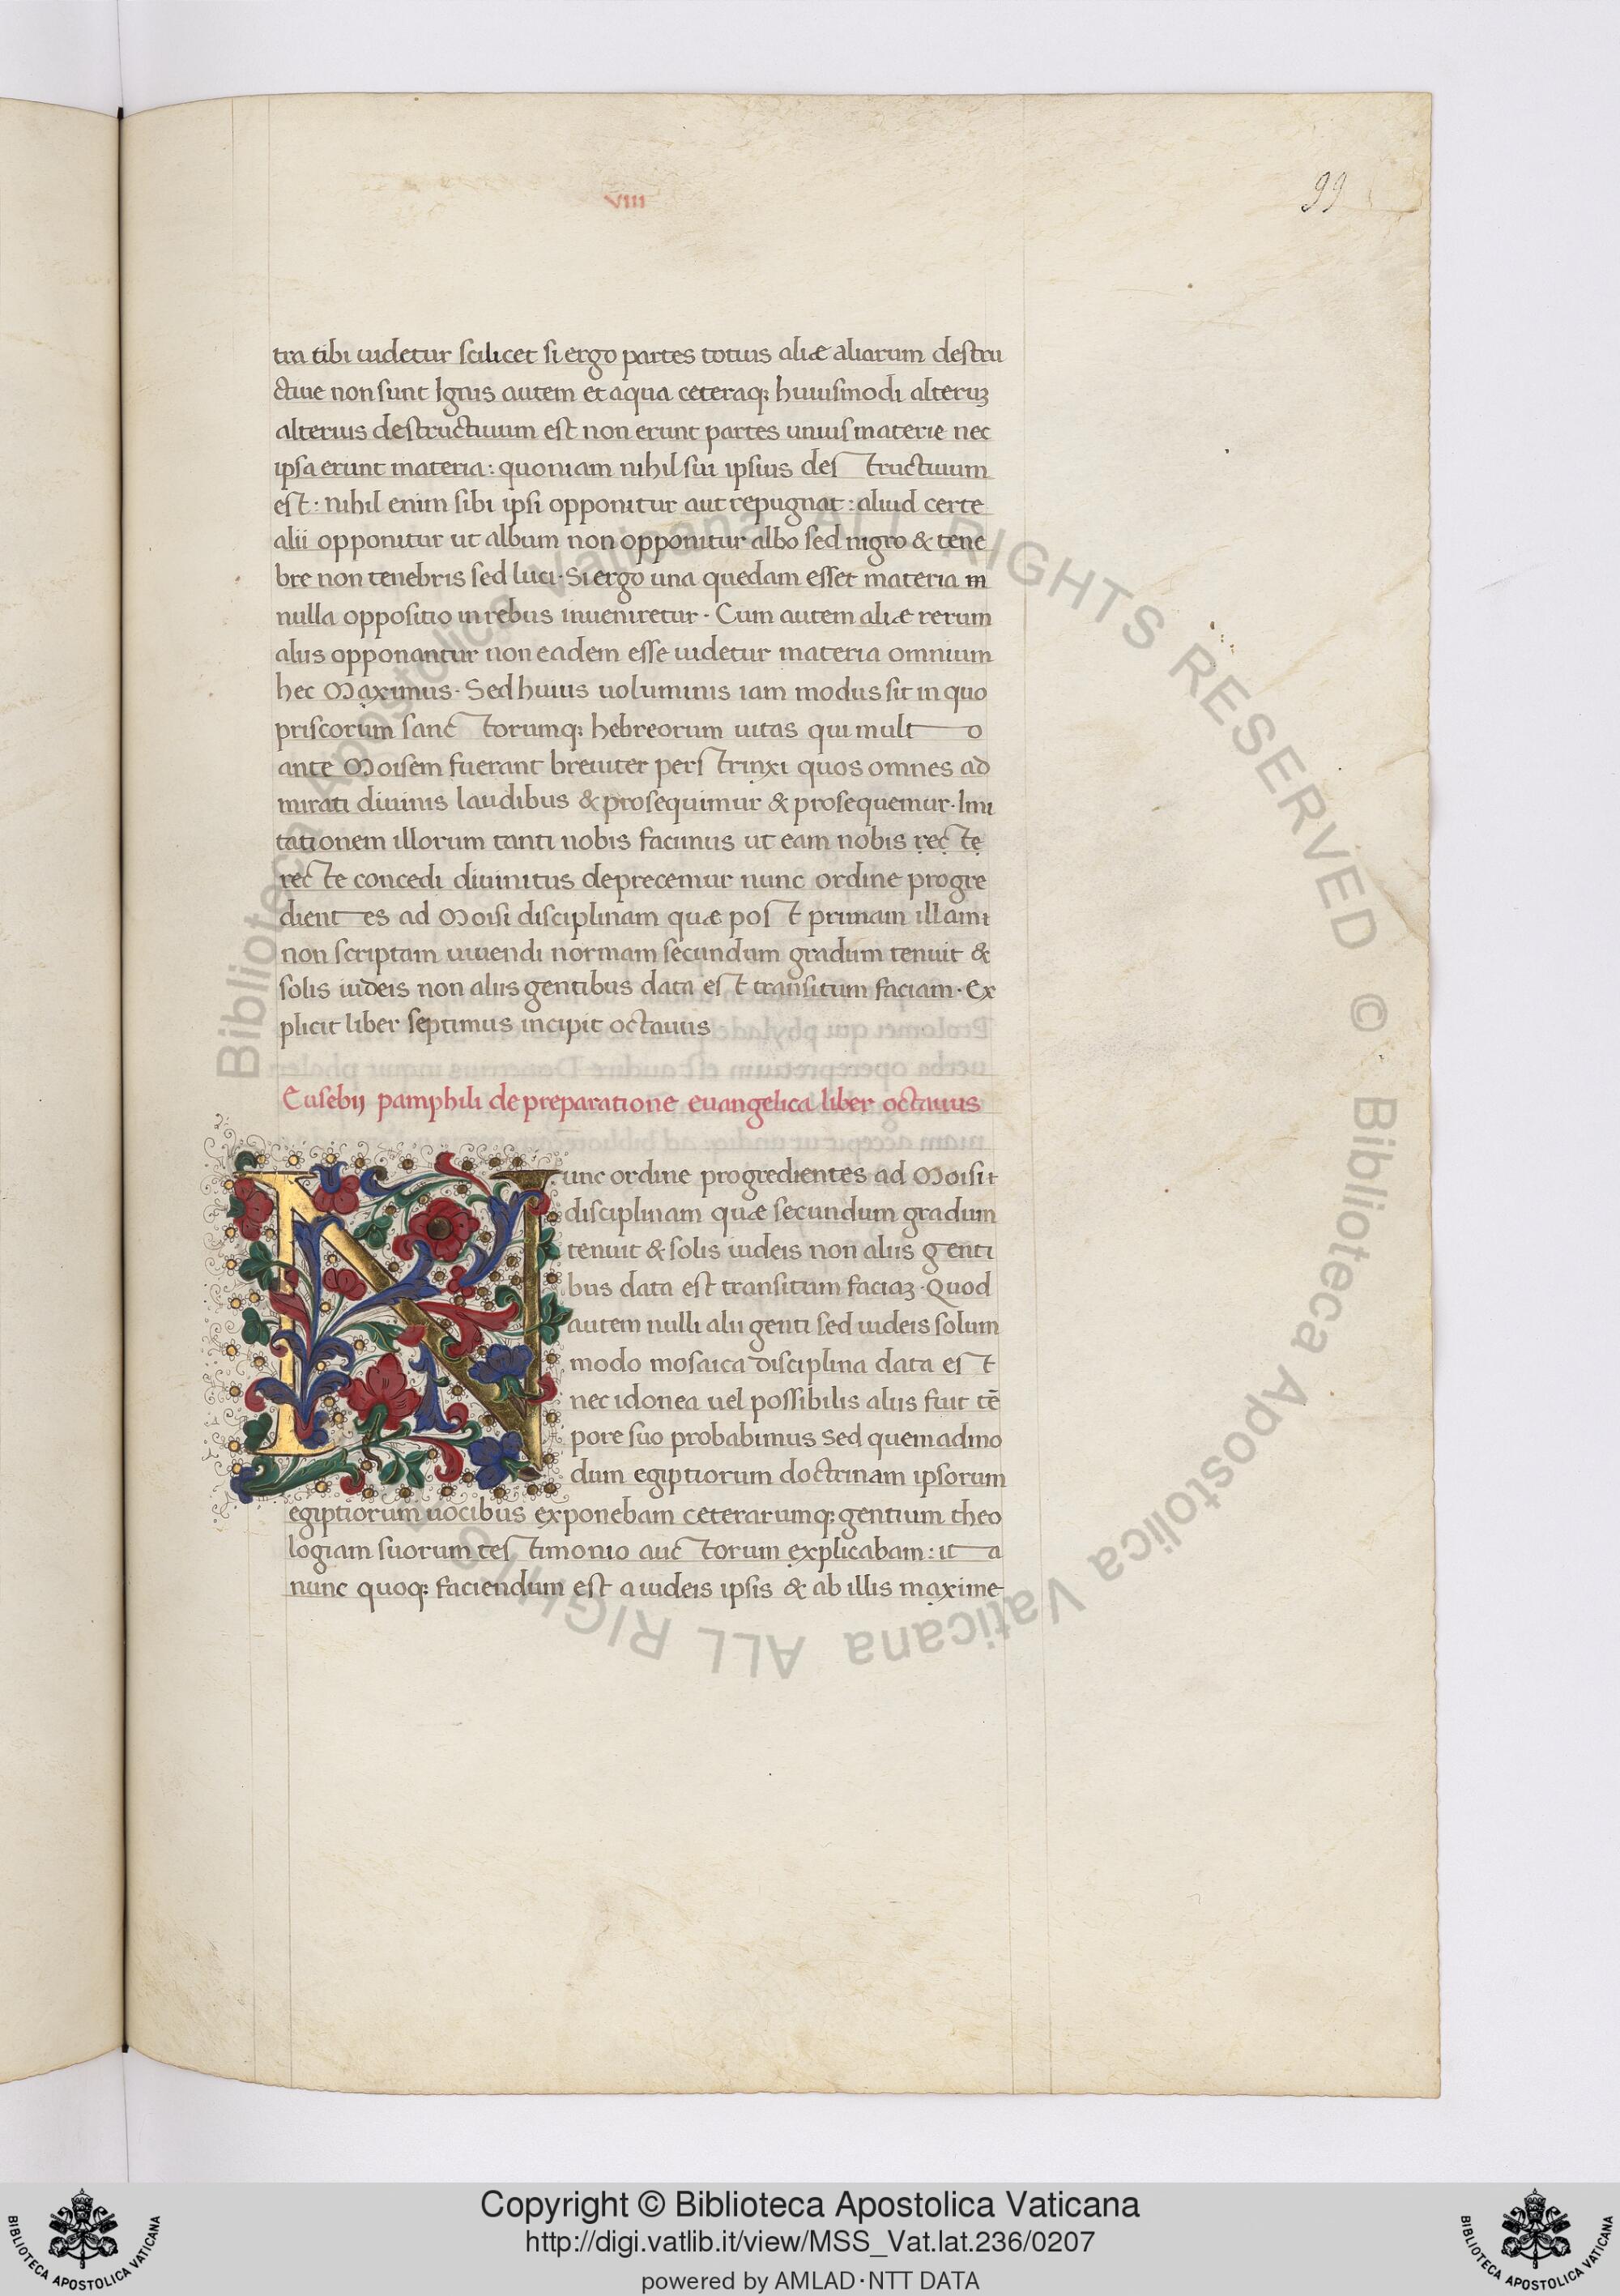 VIII
99
tra tibi uidetur scilicet si ergo partes totius aliæ aliarum destru
ctiue non sunt Ignis autem et aqua ceteraq; huiusmodi alteruȝ
alterius destructiuum est non erunt partes unius materie nec
ipsa erunt materia: quoniam nihil sui ipsius destructiuum
est· nihil enim sibi ipsi opponitur aut repugnat: aliud certe
alii opponitur ut album non opponitur albo sed nigro & tene
bre non tenebris sed luci· Si ergo una quedam esset materia in
nulla oppositio in rebus inueniretur· Cum autem aliæ rerum
aliis opponantur non eadem esse uidetur materia omnium
hec Maximus· Sed huius uoluminis iam modus sit in quo
priscorum sanctorumq; hebreorum uitas qui multo
ante Moisem fuerant breuiter perstrinxi quos omnes ad
mirati diuinis laudibus & prosequimur & prosequemur· Imi
tationem illorum tanti nobis facimus ut eam nobis recte
recte concedi diuinitus deprecemur nunc ordine progre
dientes ad Moisi disciplinam quæ post primam illam i
non scriptam uiuendi normam secundum gradum tenuit &
solis iudeis non aliis gentibus data est transitum faciam· Ex
plicit liber septimus incipit octauus
Eusebij pamphili de preparatione euangelica liber octauus
Nunc ordine progredientes ad Moisi t
disciplinam quæ secundum gradum
tenuit & solis iudeis non aliis genti
bus data est transitum faciaȝ· Quod
autem nulli alii genti sed iudeis solum
modo mosaica disciplina data est
nec idonea uel possibilis aliis fuit tē
pore suo probabimus Sed quemadmo
dum egiptiorum doctrinam ipsorum
egiptiorum uocibus exponebam ceterarumq; gentium theo
logiam suorum testimonio auctorum explicabam: ita
nunc quoq; faciendum est a iudeis ipsis & ab illis maxime
Biblioteca Apostolica Vaticana ALL RIGHTS RESERVED © Biblioteca Apostolica Vaticana ALL RIGHTS
Copyright © Biblioteca Apostolica Vaticana
http://digi.vatlib.it/view/MSS_Vat.lat.236/0207
powered by AMLAD·NTT DATA
BIBLIOTECA APOSTOLICA VATICANA
BIBLIOTECA APOSTOLICA VATICANA